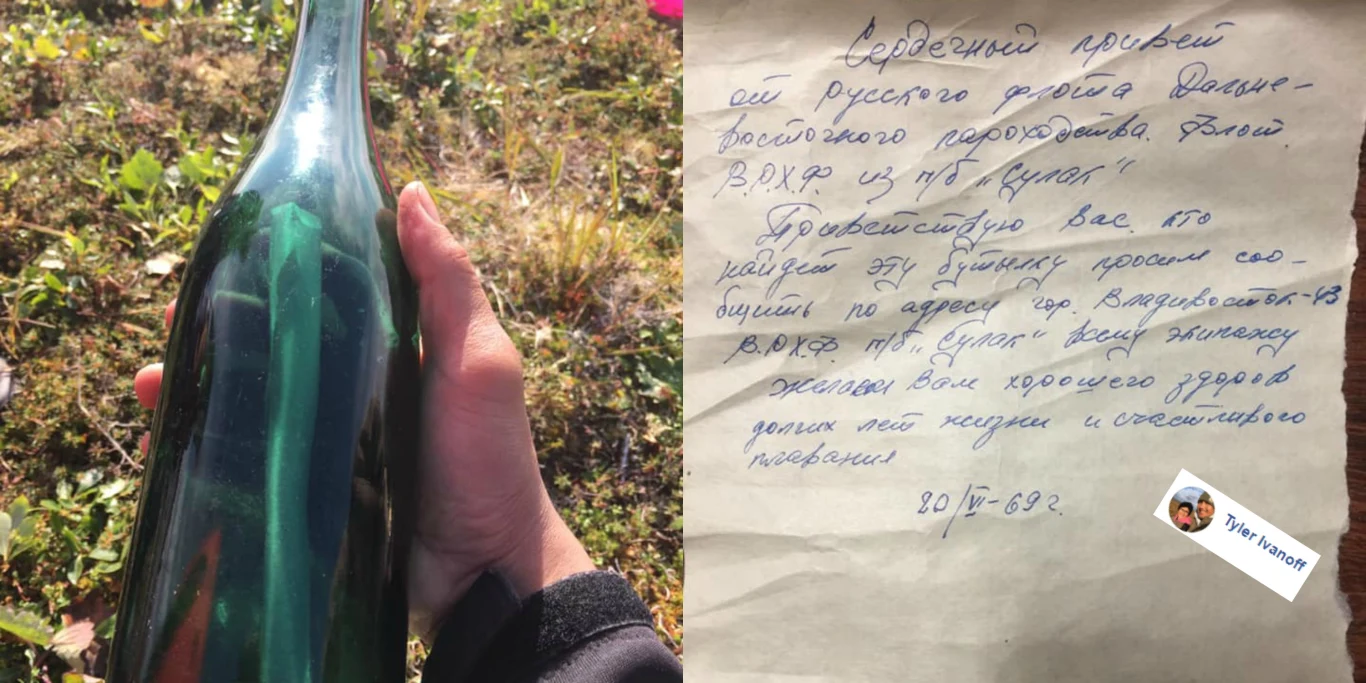 Сердечный привет
от русского флота Дальне-
восточного пароходства. Флот
В.Р.Х.Ф. из п/б „Сулак"
Приветствую Вас кто
найдет эту бутылку просим соо-
бщить по адресу гор. Владивосток-43
В.Р.Х.Ф. п/б „Сулак" всему экипажу
желаем Вам хорошего здоров
долгих лет жизни и счастливого
плавания
20/VI-69 г.
Tyler Ivanoff